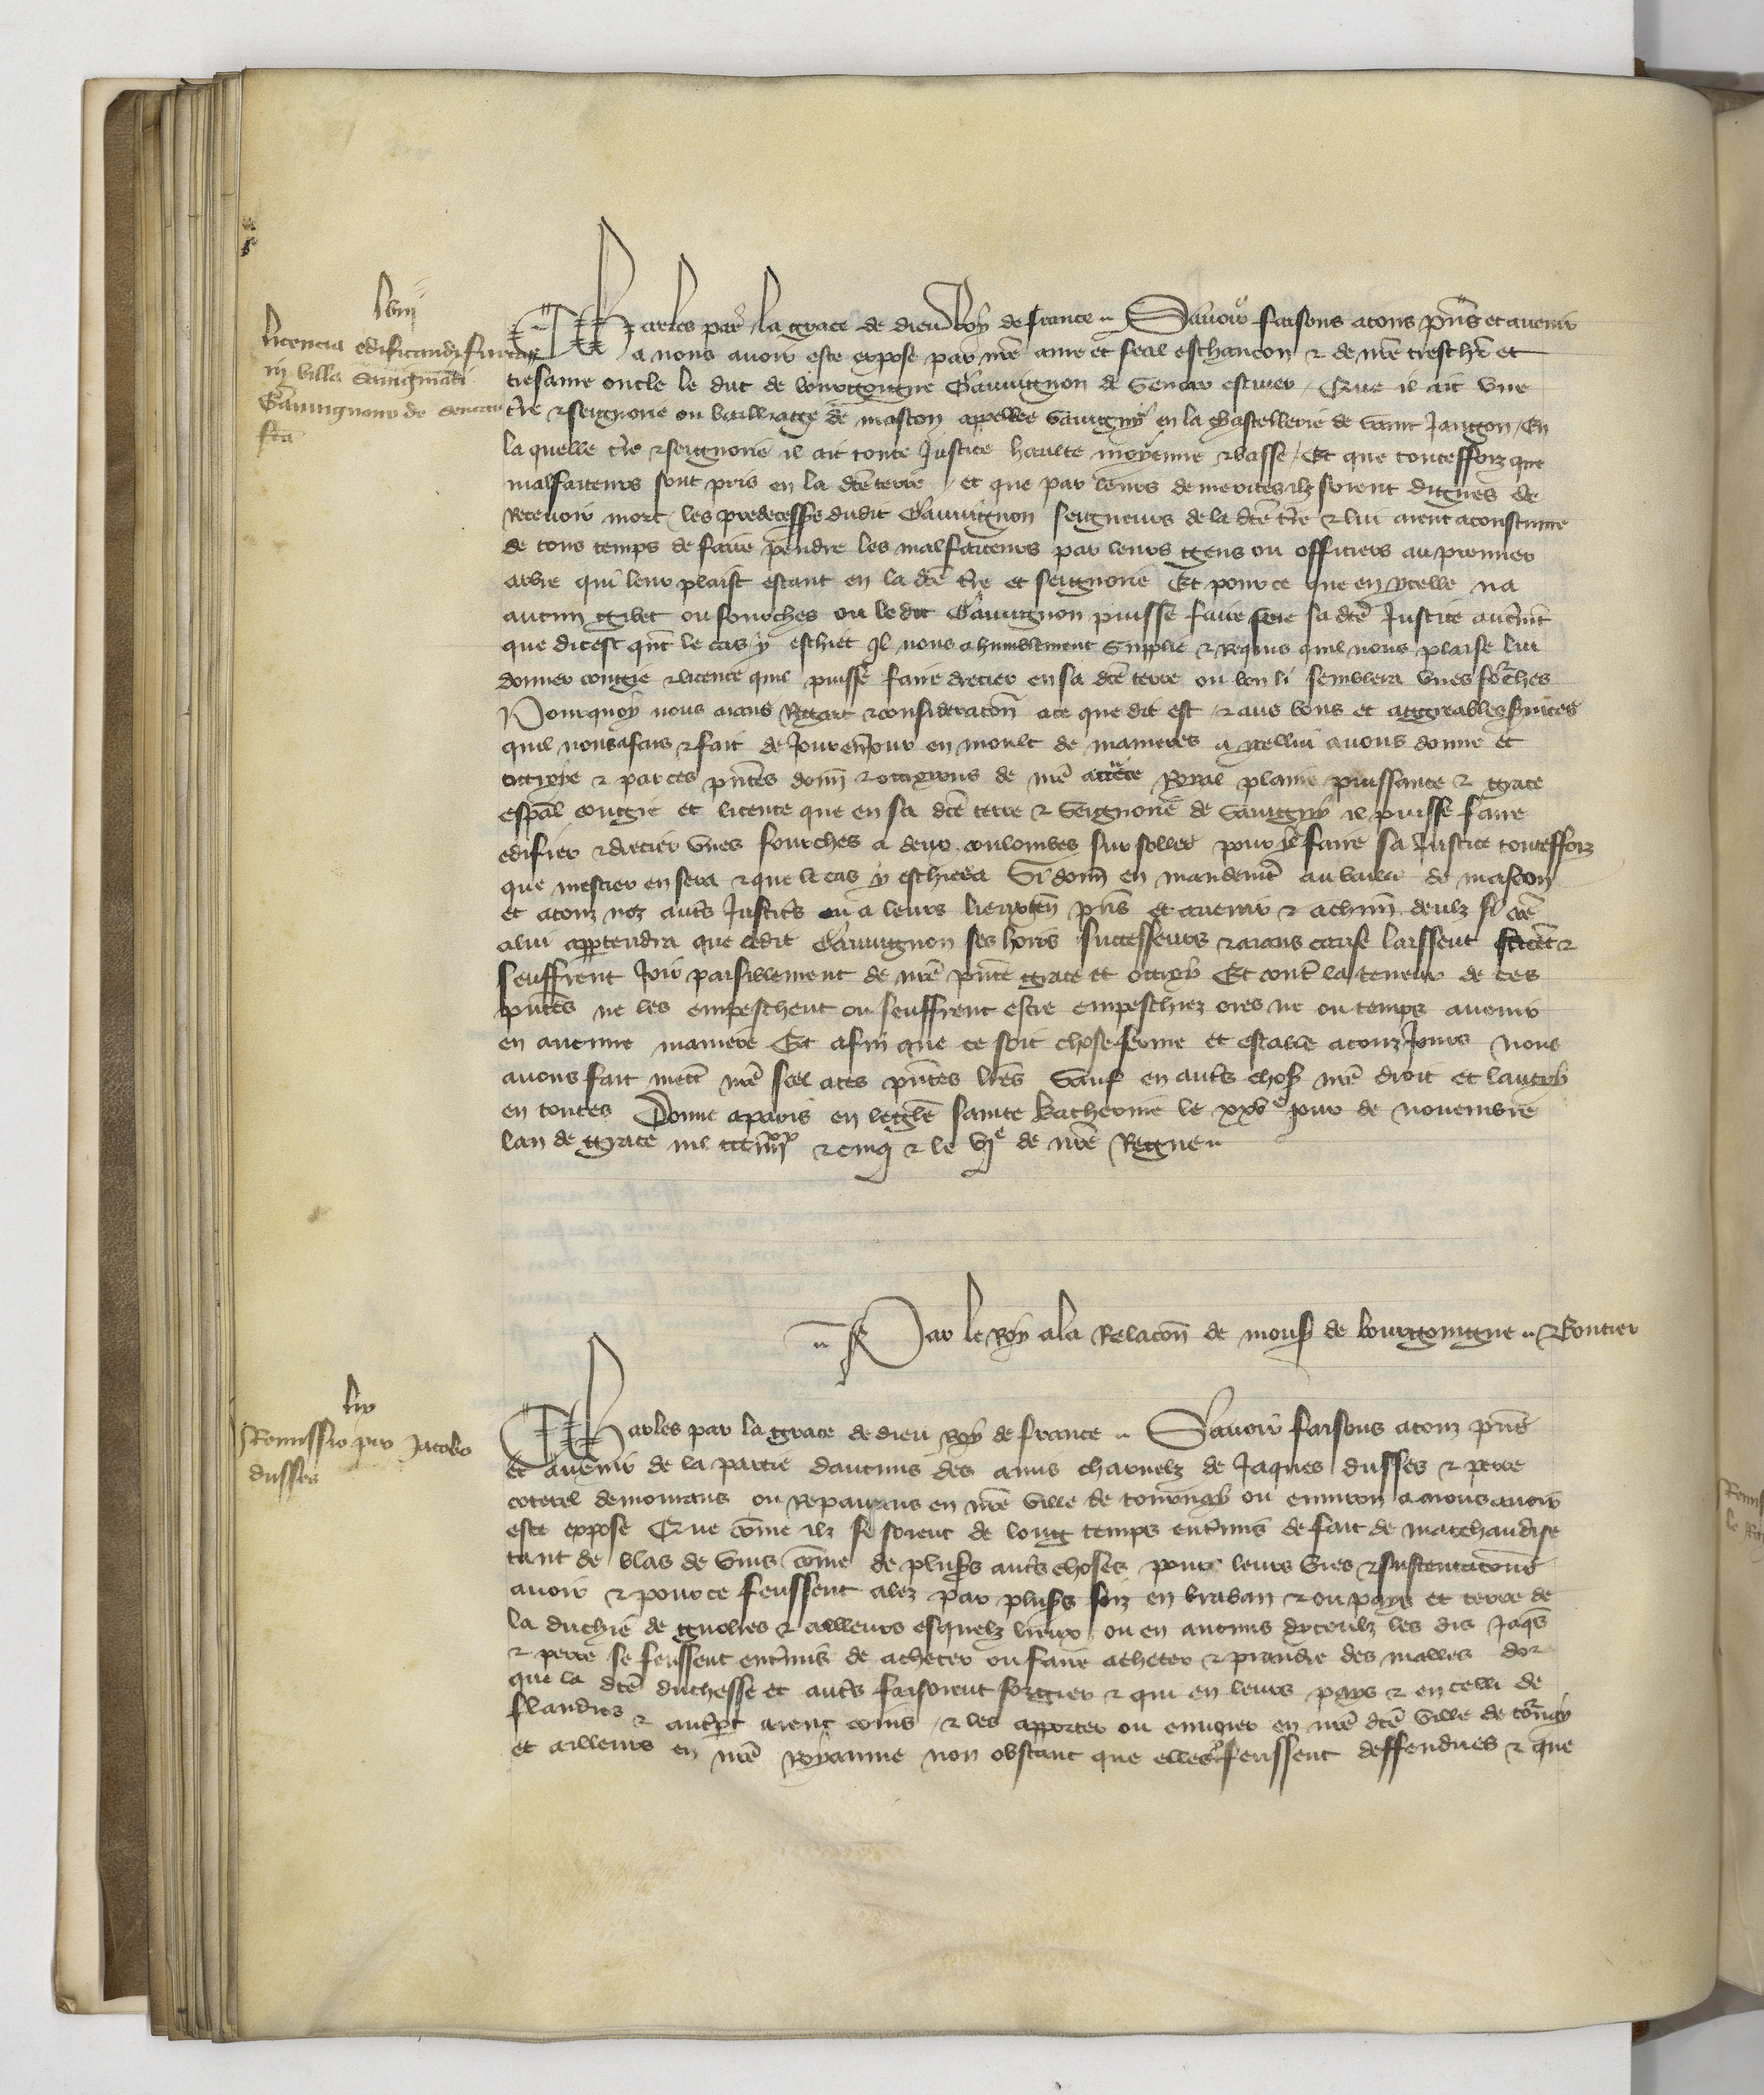 lviii
Licencia edificandi furcas
in villa Sauigniaci
Gauuignono de Senecin
fca
Charles par la grace de dieu Roy de france Sauoir faisons a tous pns et auenir
a nous auoir este expose par nre ame et feal eschancon & de nre treschr et
tresame oncle le duc de bourgongne Gauuignon de Senecin escuier / Que il ait vne
tre & seignorie ou bailliage de mascon appellee Sauigny en la chastellerie de saint Jangon / En
la quelle tre & seignorie il ait toute Justice haulte moyenne & basse / Et que toutesfoiz que
malfaiteurs sont pris en la dce terre / et que par leurs demerites ilz soient dignes de
Receuoir mort / les predecesss dudit Gauuignon seigneurs de la dce tre & lui aient acoustume
de tous temps de faire pendre les malfaiteurs par leurs gens ou officiers au premier
arbre qui leur plaist estant en la dce tre et seignorie Et pour ce que en ycelle na
aucun gibet ou fourches ou le dit Gauuignon puisse faire sa dce Justice
que dit est qnt le cas y eschiet Il nous a humblement Supplie & Requis quil nous plaise lui
donner congie & licence quil puisse faire drecier en sa dce terre ou bon li semblera vnes forches
Pourquoy nous aians Regart & consideracon a ce que dit est / & aus bons et aggreables seruices
quil nous a fais & fait de Jour en Jour en moult de manieres a ycellui auons donne et
ottroye & par ces pntes donn & ottroions de nre auctte Royal plaine puissance & grace
espal congie et licence que en sa dce terre & Seignorie de Sauigny il puisse faire
edifier & drecier vnes fourches a deux coulombes sur solles pour y faire sa Justice toutesfoiz
que mestier en sera & que le cas y escherra Si donn en mandemt au bailli de mascon
et a touz noz auts Justics ou a leurs lieuxten pns et auenir & a chun deulz si coe
a lui appartendra que ledit Gauuignon ses hoirs successeurs & aians cause laissent &
seuffrent Joir paisiblement de nre pnte grace et ottroy Et contre la teneur de ces
pntes ne les empeschent ou seuffrent estre empeschiez ores ne ou temps auenir
en aucune maniere Et afin que ce soit chose ferme et estable a touz Jours Nous
auons fait mett nre seel a ces pntes lres Sauf en auts choss nre droit et lautruy
en toutes Donne a paris en leglise sainte Katherine le xxve jour de nouembre
lan de grace mil ccc iiiixx & cinq & le vje de nre Regne
Par le Roy a la Relacon de mons de bourgoingne
lix
Remissio pro Jacobo
dusses
Charles par la grace de dieu Roy de france Sauoir faisons a touz pns
et auenir de la partie daucuns des amis charnelz de Jaques dusses & perre
coterel demourans ou Repairans en nre ville de tournay ou enuiron a nous auoir
este expose Que come ilz se soient de long temps entremis de fait de marchandise
tant de blas de vins come de pluss auts choses pour leurs vies & sustentacons
auoir & pour ce feussent alez par pluss foiz en braban & ou pays et terre de
la duchie de guelres & ailleurs esquelz lieux ou en aucuns dyceulz les dis Jaqs
& perre se feussent entremis de acheter ou faire acheter & prendre des malles dor
que la dce duchesse et auts faisoient forgier & qui en leurs pays & en celli de
flandres & autrpt aient cours / & les apporter ou enuoier en nre dce ville de tornay
et ailleurs en nre Royaume non obstant que elles feussent deffendues & que